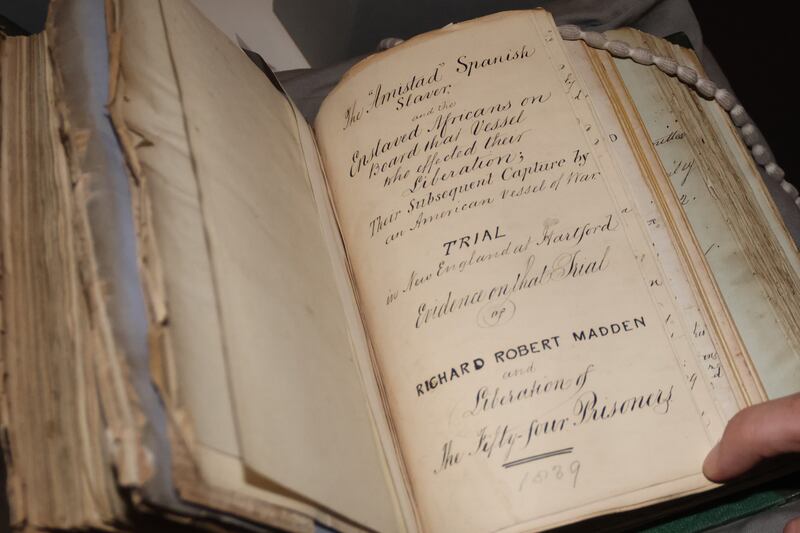 The "Amistad" Spanish
Slaver
and the
Enslaved Africans on
Board that Vessel
who effected their
Liberation;
Their Subsequent Capture by
an American Vessel of War
TRIAL
in New England at Hartford
Evidence on that Trial
of
RICHARD ROBERT MADDEN
and
Liberation of
The Fifty-four Prisoners
1839